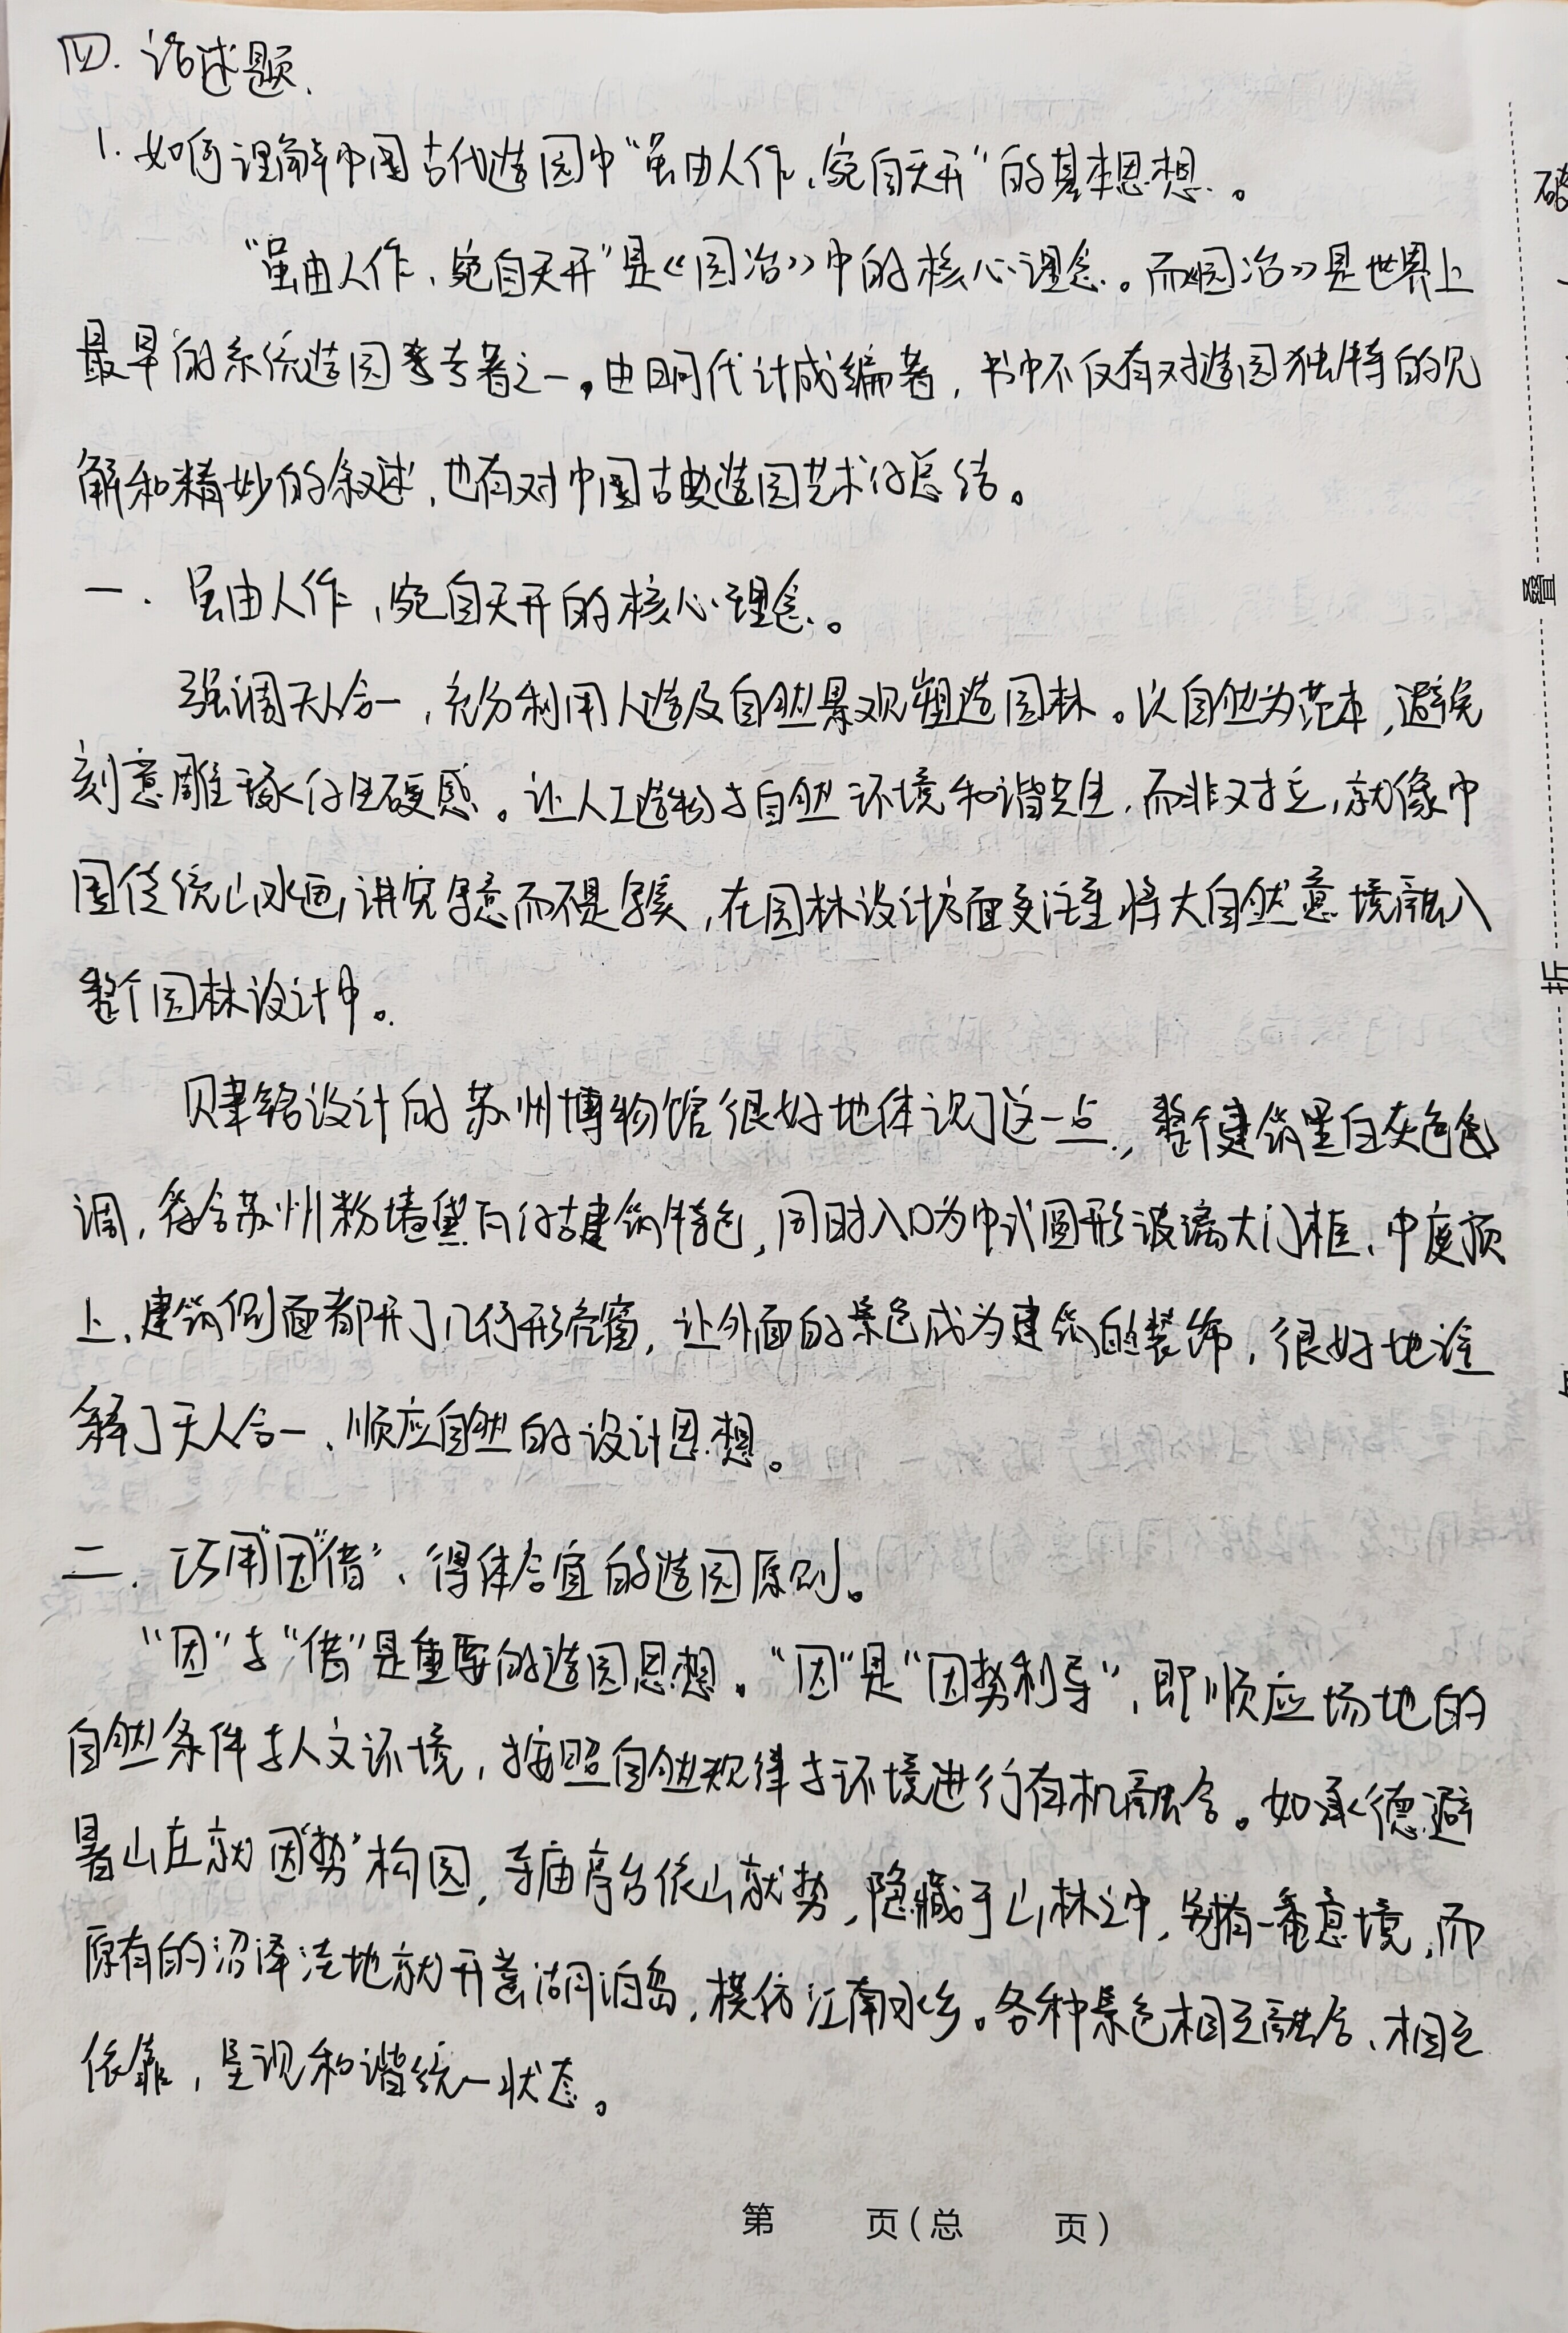 四. 论述题.
1. 如何理解中国古代造园中“虽由人作,宛自天开”的基本思想.。
“虽由人作,宛自天开”是《园冶》中的核心理念.。而《园冶》是世界上
最早的系统造园专著之一。由明代计成编著,书中不仅有对造园独特的见
解和精妙的叙述,也有对中国古典造园艺术的总结。
一. 虽由人作,宛自天开的核心理念.。
强调天人合一,充分利用人造及自然景观塑造园林。以自然为范本,避免
刻意雕琢的生硬感。让人工造物与自然环境和谐共生,而非对立,就像中
国传统山水画,讲究写意而不是写实,在园林设计方面更注重将大自然意境融入
整个园林设计中。
贝聿铭设计的苏州博物馆很好地体现了这一点.,整个建筑呈白灰色色
调,符合苏州粉墙黛瓦的古建筑特色,同时入口为中式圆形玻璃大门框、中庭顶
上、建筑侧面都开了几何形窗,让外面的景色成为建筑的装饰,很好地诠
释了天人合一、顺应自然的设计思想。
二. 巧用“因”“借”、得体合宜的造园原则。
“因”与“借”是重要的造园思想。“因”是“因势利导”,即顺应场地的
自然条件与人文环境,按照自然规律与环境进行有机融合。如承德避
暑山庄就“因势”构园,寺庙亭台依山就势,隐藏于山林之中,别有一番意境,而
原有的沼泽洼地就开凿湖泊岛,模仿江南水乡。各种景色相互融合、相互
依靠,呈现和谐统一状态。
第 页(总 页)
破
叠
折